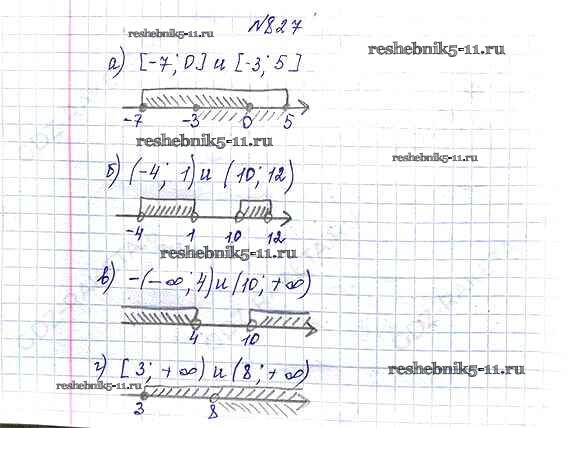 №827
reshebnik5-11.ru
а) [-7; 0] и [-3; 5]
-7 -3 0 5
reshebnik5-11.ru
reshebnik5-11.ru
б) (-4; 1) и (10; 12)
-4 1 10 12
reshebnik5-11.ru
в) -(-∞; 4) и (10; +∞)
4 10
г) [3; +∞) и (8; +∞)
reshebnik5-11.ru
reshebnik5-11.ru
3 8